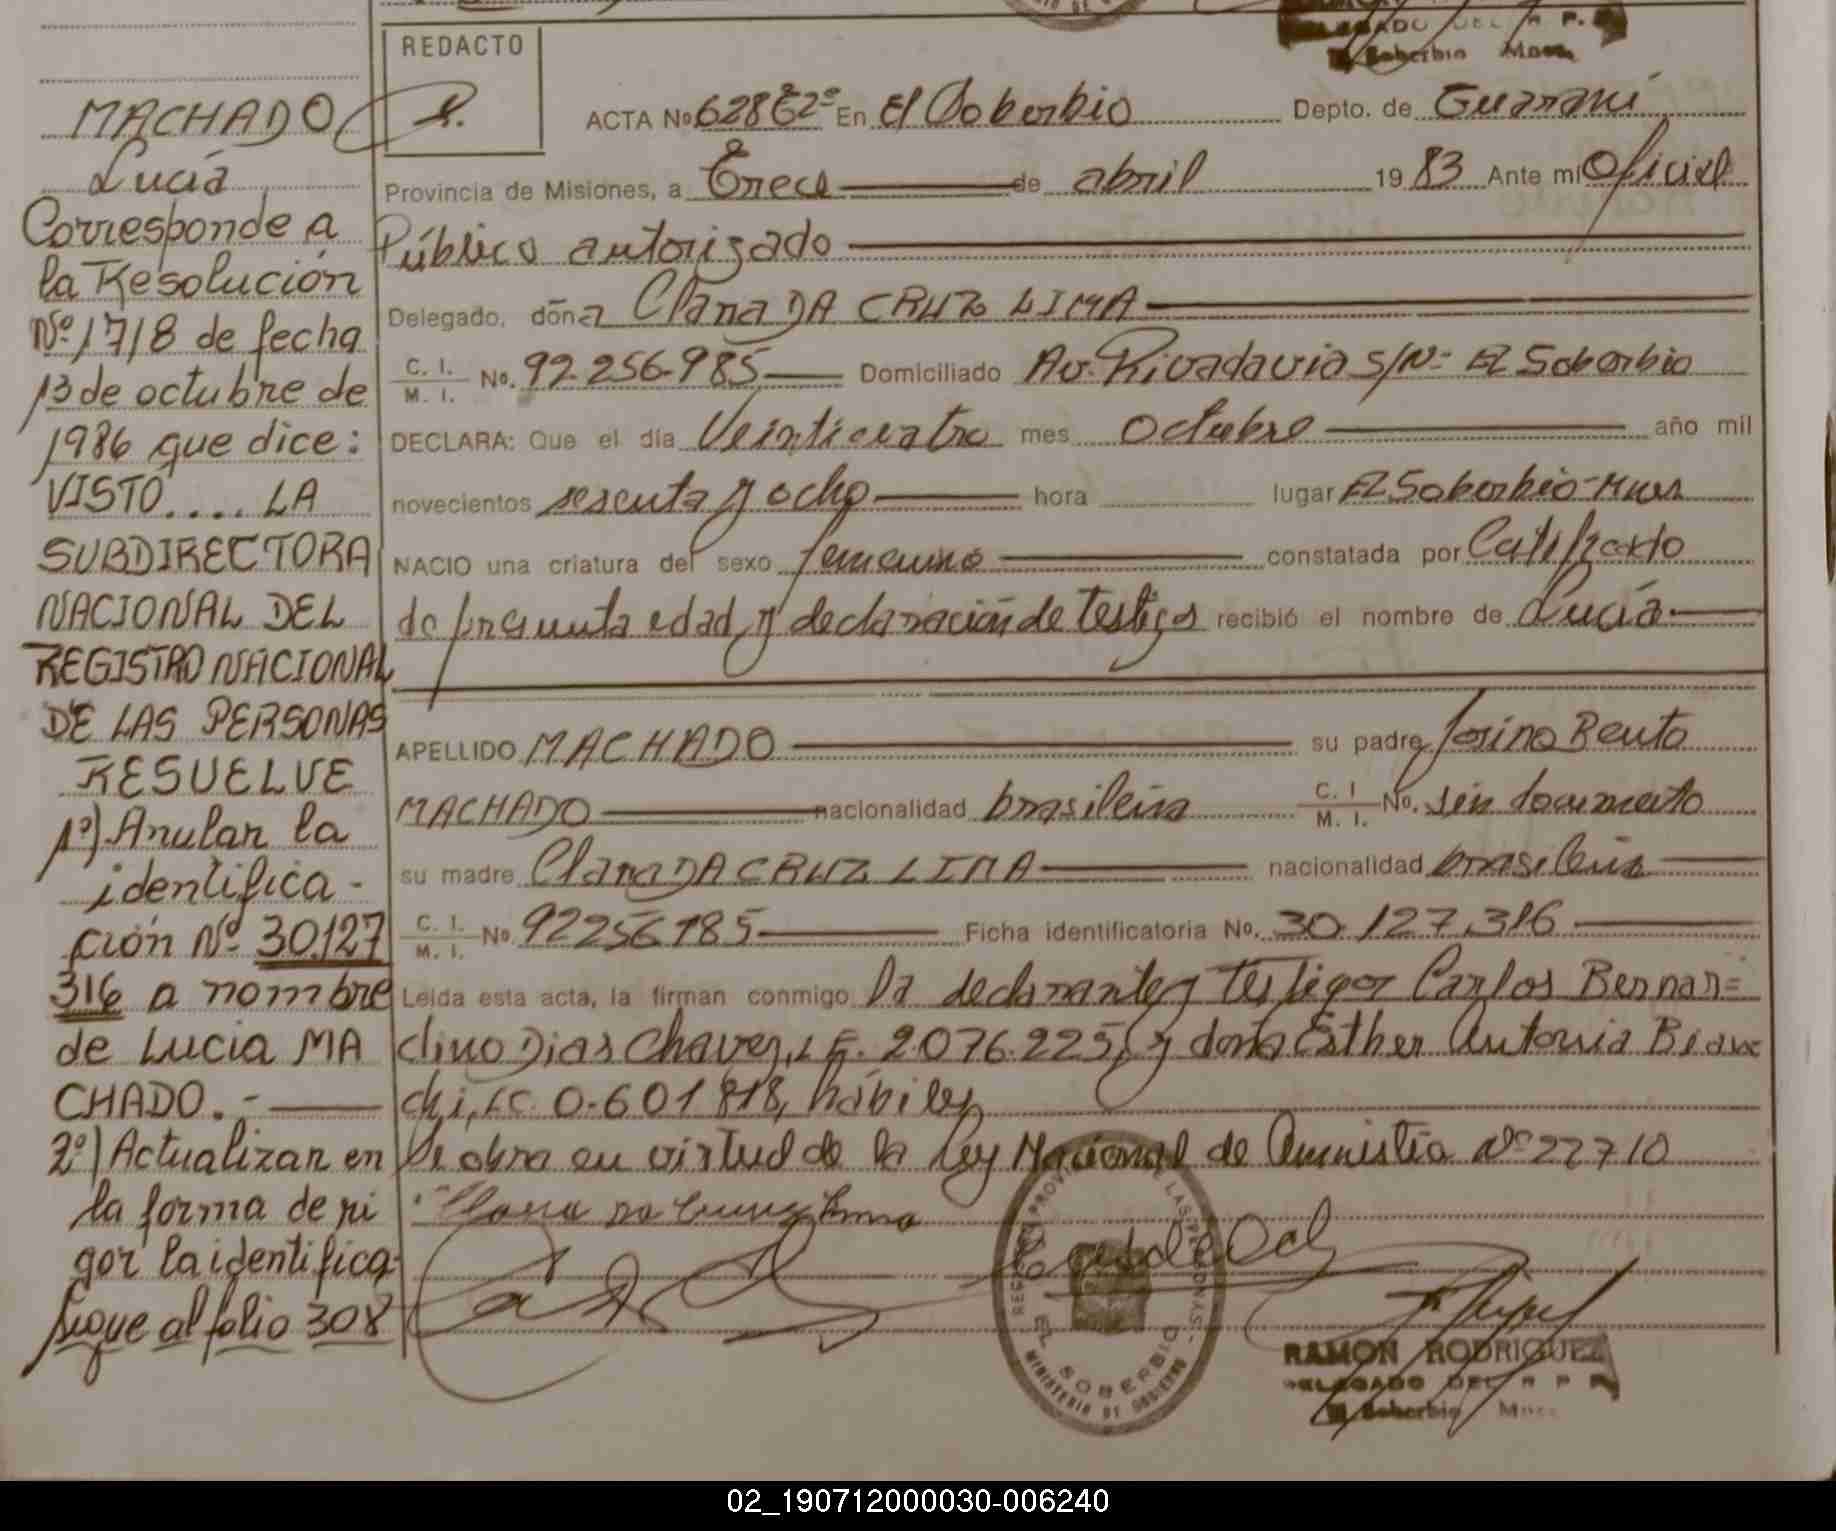 MACHADO
Lucía
Corresponde a
la Resolución
Nº 1718 de fecha
13 de octubre de
1986 que dice:
VISTO..... LA
SUBDIRECTORA
NACIONAL DEL
REGISTRO NACIONAL
DE LAS PERSONAS
RESUELVE
1º) Anular la
identifica-
ción Nº 30.127
316 a nombre
de Lucia MA
CHADO.-
2º) Actualizar en
la forma de ri
gor la identifica-
sigue al folio 308
REDACTO
ACTA No 628 En El Soberbio Depto. de Guaraní
Provincia de Misiones, a Trece de abril 1983 Ante mi Oficial
Público autorizado
Delegado, doña Clara DA CRUZ LIMA
C. I. M. I. No. 92.256.985 Domiciliado Av. Rivadavia S/Nº El Soberbio
DECLARA: Que el día Veinticuatro mes Octubre año mil
novecientos sesenta y ocho hora lugar El Soberbio-Mnes
NACIO una criatura del sexo femenino constatada por Certificado
de presunta edad y declaración de Testigos recibió el nombre de Lucía
APELLIDO MACHADO su padre Bento
MACHADO nacionalidad brasileña C. I. M. I. No. sin documento
su madre Clara DA CRUZ LIMA nacionalidad brasileña
C. I. M. I. No. 92256985 Ficha identificatoria No. 30.127.316
Leida esta acta, la firman conmigo la declarante y Testigos Carlos Bernar=
dino Dias Chavez, L E. 2.076.225, y doña Esther Antonia Bian
chi, LC. 0.601.818, hábiles
Se obra en virtud de la Ley Nacional de Amnistía Nº 22710
REGISTRO PROVINCIAL DE LAS PERSONAS
EL SOBERBIO
MINISTERIO DE GOBIERNO
RAMON RODRIGUEZ
DELEGADO DEL R P P
El Soberbio Mnes
02_190712000030-006240